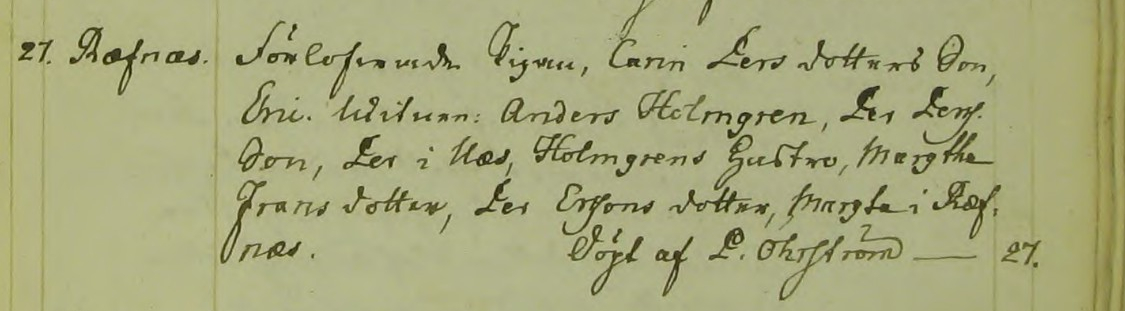 27. Ræfnæs. Förlofwade Pigan, Carin Pers dotters Son,
Eric. Witnen: Anders Holmgren, Per Pers.
Son, Per i Næs, Holmgrens Hustro, Margtha
Frans dotter, Per Ersons dotter, Margta i Ræf.
næs. Döpt af P. Öhrström — 27.